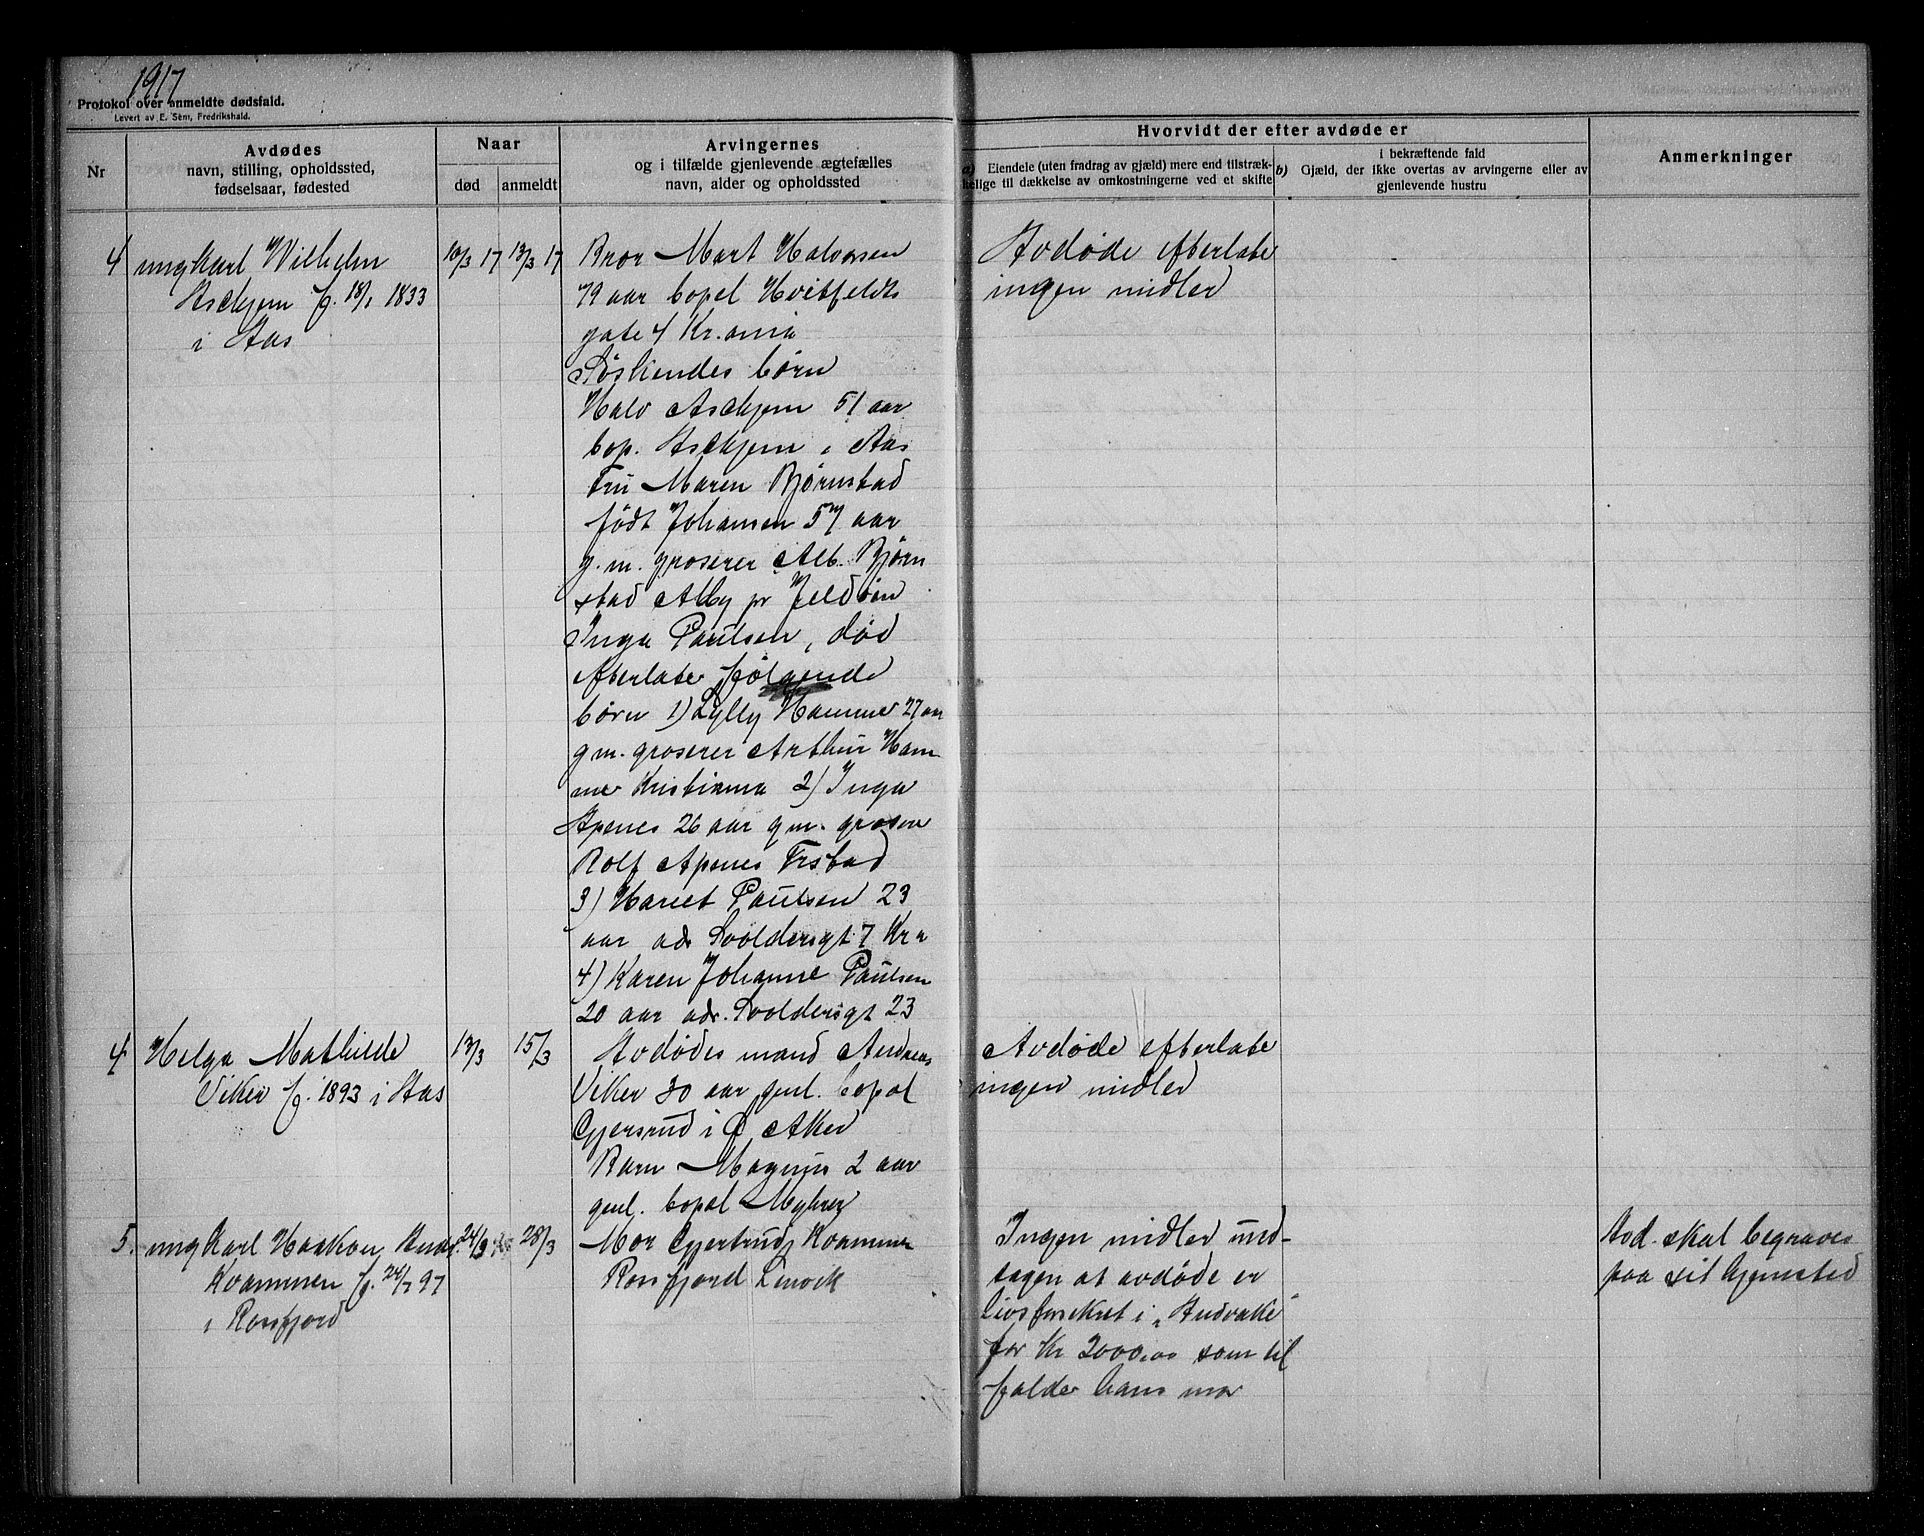 1917
Protokol over anmeldte dødsfald.
Levert av E. Sem, Fredrikshald.
Nr
Avdødes
navn, stilling, opholdssted,
fødselsaar, fødested
Naar
død
anmeldt
Arvingernes
og i tilfælde gjenlevende ægtefælles
navn, alder og opholdssted
Hvorvidt der efter avdøde er
a) Eiendele (uten fradrag av gjæld) mere end tilstræk-
kelige til dækkelse av omkostningerne ved et skifte
b) i bekræftende fald
Gjæld, der ikke overtas av arvingerne eller av
gjenlevende hustru
Anmerkninger
4 ungKarl Wilhelm
Askjem f. 18/1 1833
i Aas
10/3 17
13/3 17
Bror Mart Halvorsen
79 aar bopel Hvitfeldts
gate 4 Kr.ania
Søskendes børn
Halv Askjem 51 aar
bop. Askjem i Aas
Fru Maren Bjørnstad
født Johansen 57 aar
g.m. groserer Alb. Bjørn
stad Alby pr Jeldøen
Inga Paulsen, død
efterlater følgende
børn 1) Lylly Hammer 27 aar
gm. groserer Arthur Ham
mer Kristiania 2) Inga
Apenes 26 aar gm. groser
Rolf Apenes Frstad
3) Hariet Paulsen 23
aar adr Svoldersgt 7 Kr a
4) Karen Johanne Paulsen
20 aar adr. Svoldersgt 23
Avdøde efterlater
ingen midler
4 Helga Mathilde
Viker f. 1893 i Aas
13/3
15/3
Avdødes mand Andreas
Viker 30 aar gml. bopæl
Gjersrud i Ø Aker
Barn Magnus 2 aar
gml. bopel Myhrer
Avdøde efterlater
ingen midler
5. ungKarl Haakon Andr.
Kvammen f. 24/7 97
i Rosfjord
24/3
28/3
Mor Gjertrud Kvammen
Rosfjord Lenvik
Ingen midler und-
tagen at avdøde er
livsforsikret i "Andvake"
for Kr 2000.00 som til
falder hans mor
Avd. skal begraves
paa sit hjemsted